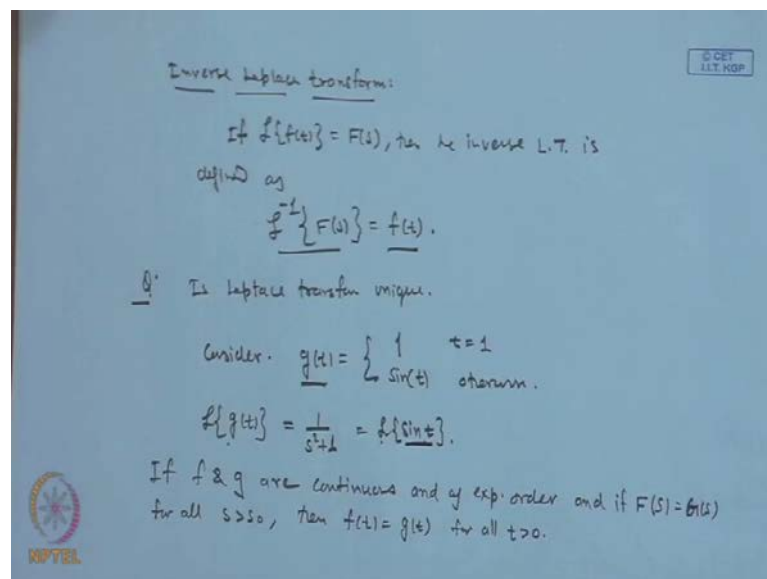 Inverse Laplace transform:
© CET
I.I.T. KGP
If ℒ{f(t)} = F(s), then the inverse L.T. is
defined as
ℒ⁻¹{F(s)} = f(t).
Q. Is Laplace transfm unique.
Consider. g(t) = { 1 t = 1
sin(t) otherwise.
ℒ{g(t)} = 1/(s²+1) = ℒ{sin t}.
If f & g are continuous and of exp. order and if F(s) = G(s)
for all s > s₀, then f(t) = g(t) for all t > 0.
NPTEL